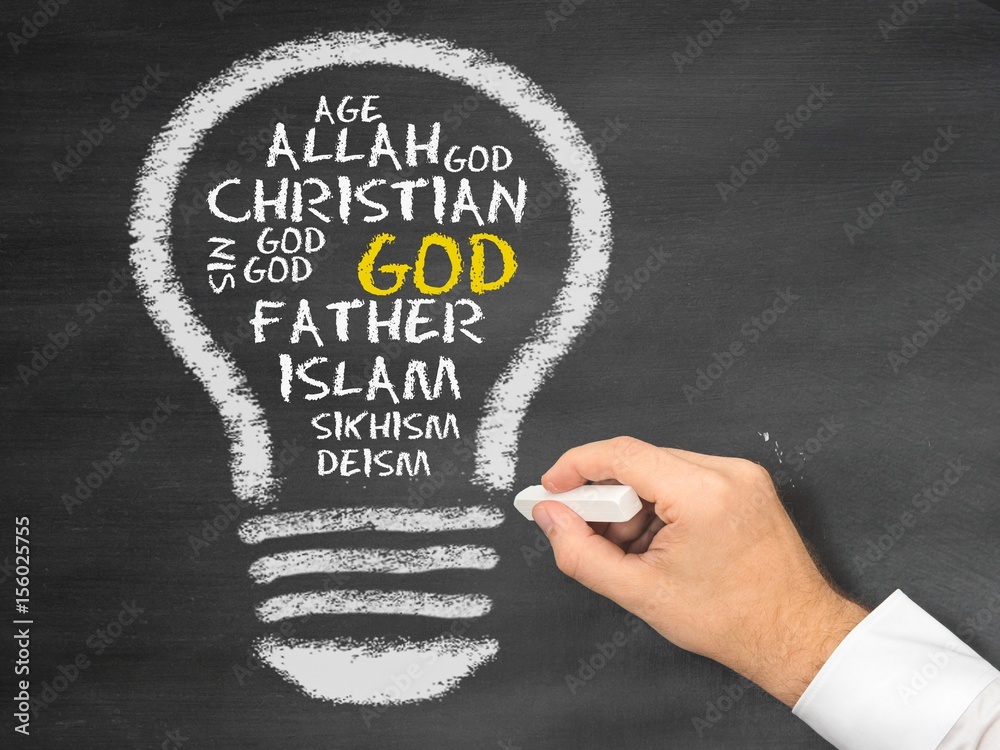 AGE
ALLAH GOD
CHRISTIAN
SIN
GOD
GOD
GOD
FATHER
ISLAM
SIKHISM
DEISM
Adobe Stock | #156025755